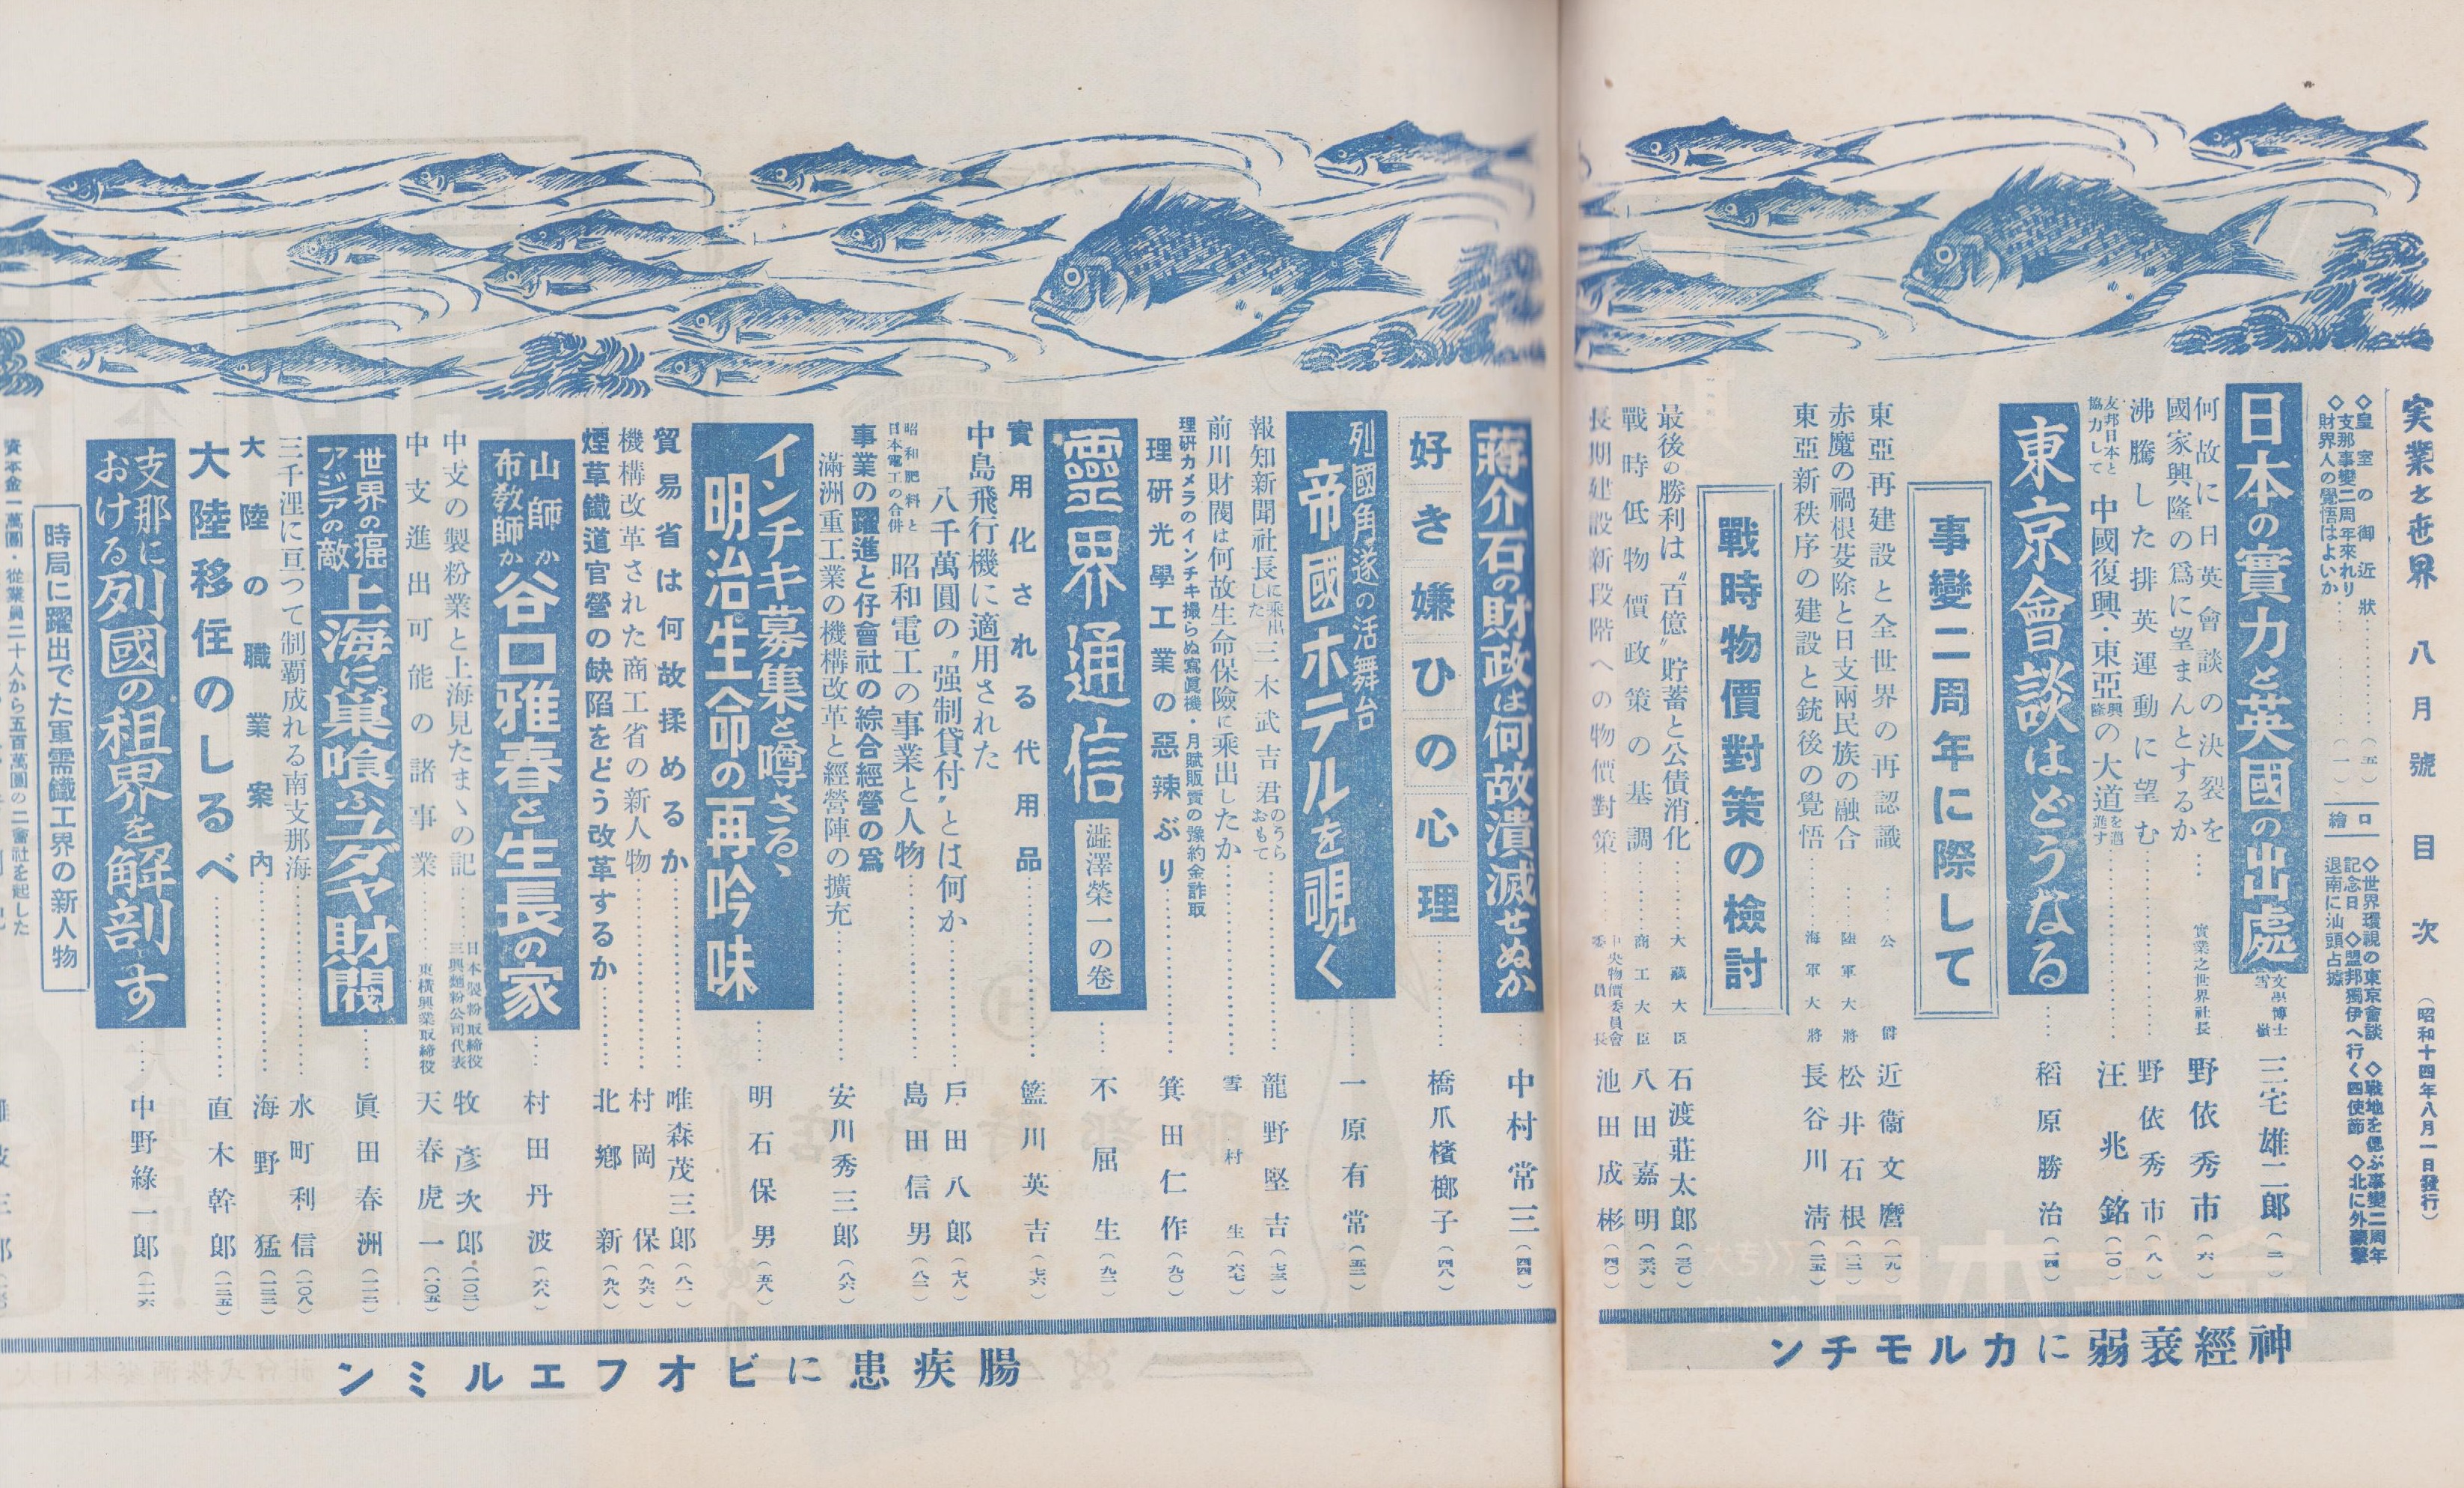 実業之世界 八月號 目次 (昭和十四年八月一日發行)
◇皇室の御近狀…………(五)
◇支那事變二周年來れり
財界人の覺悟はよいか…………(一)
口繪
◇世界環視の東京會談 ◇戰地を偲ぶ事變二周年
記念日 ◇盟邦獨伊へ行く四使節 ◇北に外蒙擊
退南に汕頭占據
日本の實力と英國の出處 文學博士 雪嶺 三宅雄二郎(二)
何故に日英會談の決裂を
國家興隆の爲に望まんとするか… 實業之世界社長 野依秀市(六)
沸騰した排英運動に望む………野依秀市(八)
友邦日本と協力して 中國復興・東亞興隆の大道を邁進す………汪兆銘(一〇)
東京會談はどうなる……稻原勝治(一四)
事變二周年に際して
東亞再建設と全世界の再認識…… 公爵 近衞文麿(一九)
赤魔の禍根芟除と日支兩民族の融合…… 陸軍大將 松井石根(二二)
東亞新秩序の建設と銃後の覺悟…… 海軍大將 長谷川淸(二五)
戰時物價對策の檢討
最後の勝利は〝百億〟貯蓄と公債消化…… 大藏大臣 石渡莊太郎(三〇)
戰時低物價政策の基調…… 商工大臣 八田嘉明(三六)
長期建設新段階への物價對策…… 中央物價委員會委員長 池田成彬(四〇)
蔣介石の財政は何故潰滅せぬか……中村常三(四四)
好き嫌ひの心理………橋爪檳榔子(四八)
列國角逐の活舞台
帝國ホテルを覗く……一原有常(五二)
報知新聞社長に乘出した三木武吉君のうらおもて………龍野堅吉(七三)
前川財閥は何故生命保險に乘出したか………雪村生(六七)
理硏カメラのインチキ撮らぬ寫眞機・月賦販賣の豫約金詐取
理硏光學工業の惡辣ぶり………箕田仁作(九〇)
靈界通信 澁澤榮一の卷……不屈生(九二)
實用化される代用品………籃川英吉(七六)
中島飛行機に適用された
八千萬圓の〝强制貸付〟とは何か………戶田八郎(七八)
昭和肥料と日本電工の合併 昭和電工の事業と人物………島田信男(八二)
事業の躍進と仔會社の綜合經營の爲
滿洲重工業の機構改革と經營陣の擴充………安川秀三郎(八六)
インチキ募集と噂さるゝ
明治生命の再吟味……明石保男(五八)
貿易省は何故揉めるか………唯森茂三郎(八一)
機構改革された商工省の新人物………村岡保(九六)
煙草鐵道官營の缺陷をどう改革するか………北鄕新(九九)
山師か布敎師か 谷口雅春と生長の家……村田丹波(六八)
中支の製粉業と上海見たまゝの記…… 日本製粉取締役 三興麵粉公司代表 牧彦次郎(一〇二)
中支進出可能の諸事業…… 東橫興業取締役 天春虎一(一〇五)
世界の癌 アジアの敵 上海に巢喰ふユダヤ財閥……眞田春洲(一一二)
三千浬に亘つて制覇成れる南支那海………水町利信(一〇八)
大陸の職業案內………海野猛(一二三)
大陸移住のしるべ………直木幹郎(一二五)
支那における列國の租界を解剖す……中野綠一郎(一一六)
時局に躍出でた軍需鐵工界の新人物
資本金一萬圓・從業員二十人から五百萬圓の二會社を起した
神經衰弱にカルモチン
腸疾患にビオフエルミン